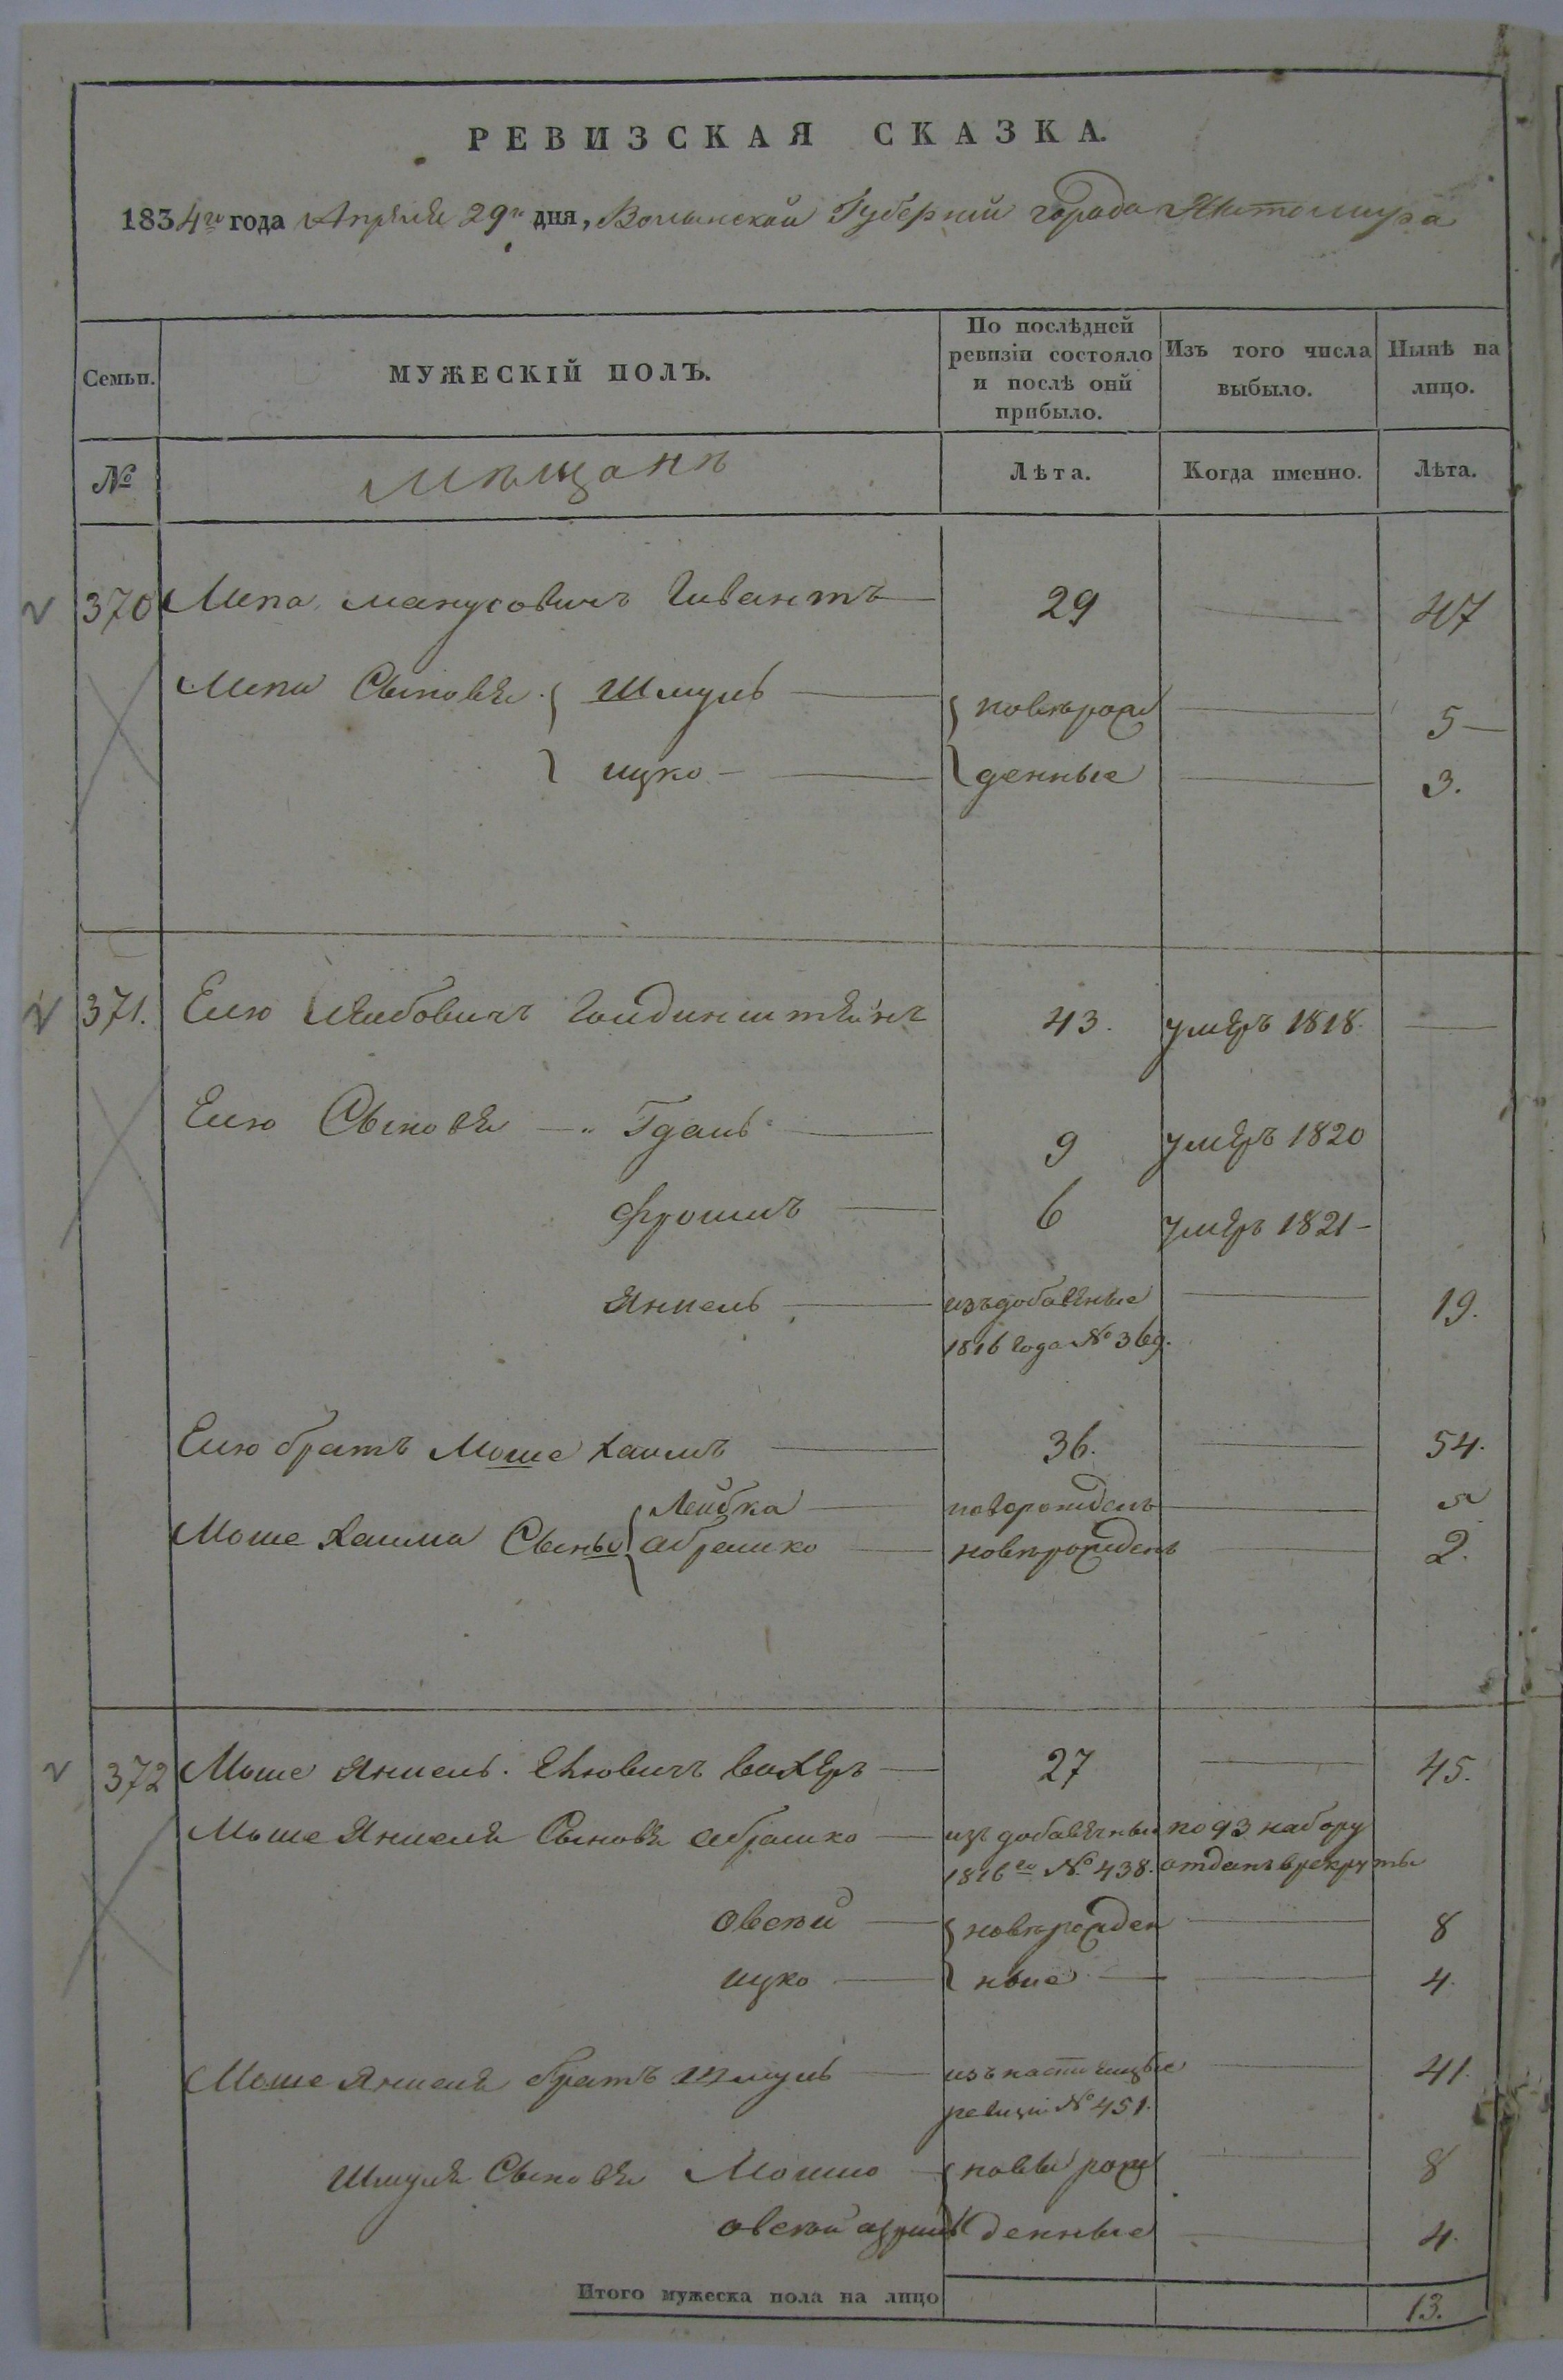 РЕВИЗСКАЯ СКАЗКА.
1834го года Апреля 29го дня, Волынской Губернии города Житомира
Семьи.
МУЖЕСКІЙ ПОЛЪ.
По послѣдней ревизіи состояло и послѣ оной прибыло.
Изъ того числа выбыло.
Нынѣ на лицо.
№
Мѣщанъ
Лѣта.
Когда именно.
Лѣта.
370 Мепа Манусовичъ 29 47
Мепы Сыновея Шмуль новорож 5
ицко денные 3.
371. Елю Лейбовичъ Голдинштейнъ 43. умеръ 1818.
Елю Сыновея Гдаль 9 умеръ 1820
Фроимъ 6 умеръ 1821
Янкель изъ добавочные 19.
1816 года № 369.
Елю братъ Моше Хаимъ 36. 54.
Лейбка новорожденъ 5
Моше Хаима Сыны Абрамко новорожденъ 2.
372 Моше Янкель Елювичъ 27 45.
Моше Янкеля Сыновя Абрамко изъ добавочных по 93 набору
1816го № 438. отданъ в рекруты
Овсей новорожден 8
ицко ные 4.
Моше Янкеля братъ Шмуль 41
ревизіи № 451.
Шмуля Сыновея Мошко новы рож 8
Овсей денные 4.
Итого мужеска пола на лицо 13.